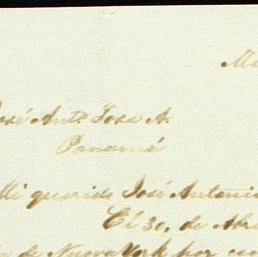 José Antº Sosa A.
Panamá
Mi querido José Antonio
El 30, de Abr
de Nueva York por